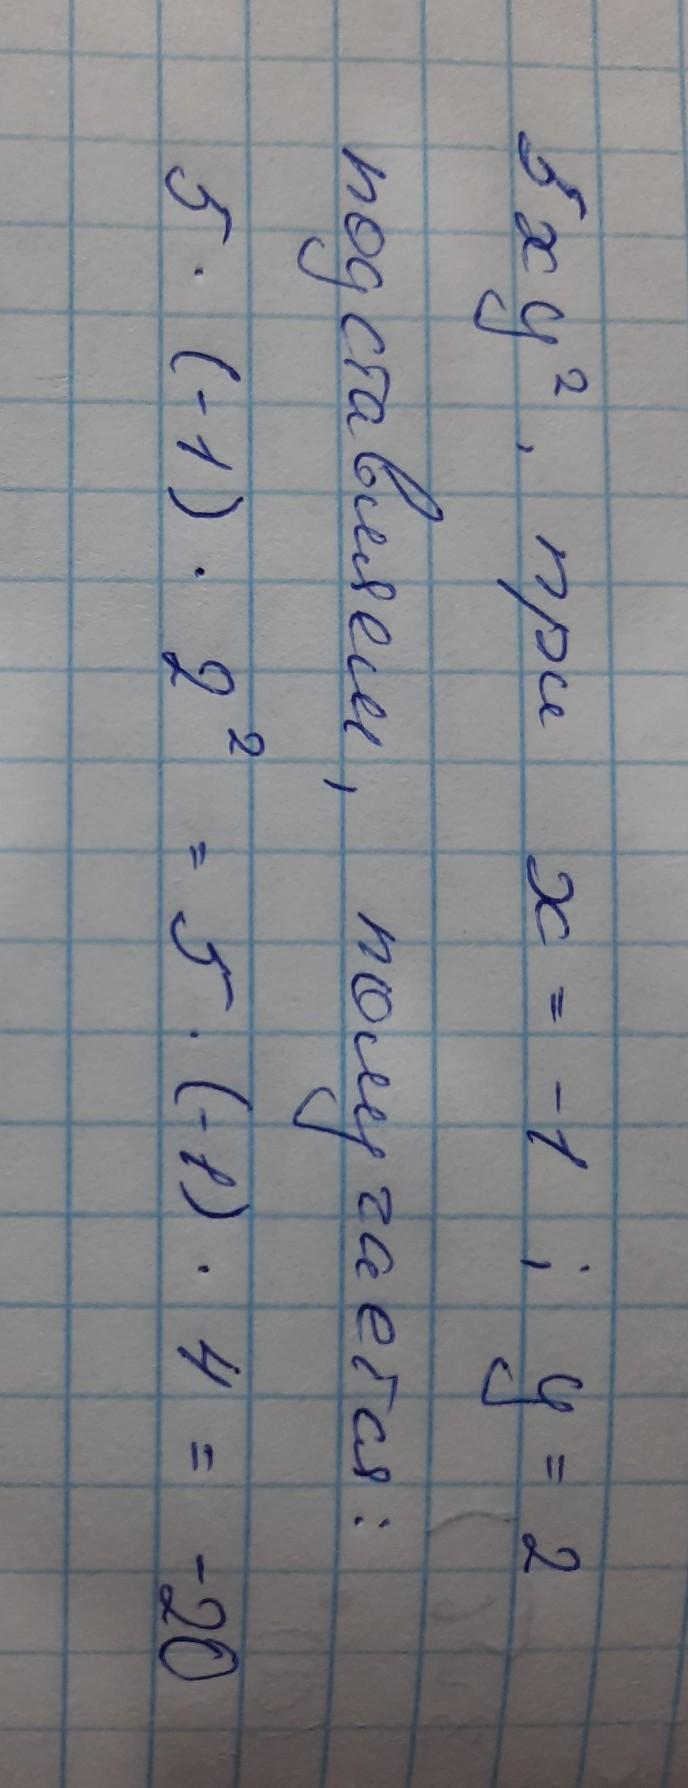 5xy², при x = -1 ; y = 2
подставляем, получается:
5 · (-1) · 2² = 5 · (-1) · 4 = -20